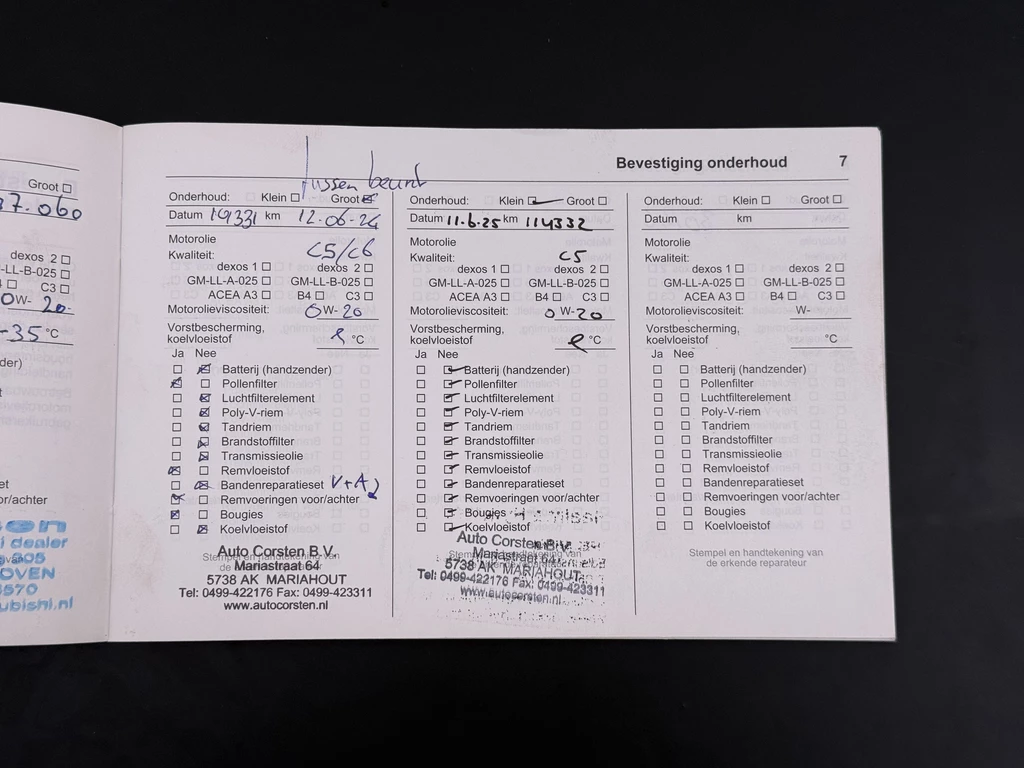 Bevestiging onderhoud 7
Groot
7.060
dexos 2
-LL-B-025
C3
0W-20
-35 °C
der)
et
or/achter
dealer
OVEN
ubishi.nl
tussen beurt
Onderhoud: Klein Groot
Datum km 12-06-24
Motorolie
Kwaliteit: C5/C6
dexos 1 dexos 2
GM-LL-A-025 GM-LL-B-025
ACEA A3 B4 C3
Motorolieviscositeit: 0W-20
Vorstbescherming,
koelvloeistof °C
Ja Nee
Batterij (handzender)
Pollenfilter
Luchtfilterelement
Poly-V-riem
Tandriem
Brandstoffilter
Transmissieolie
Remvloeistof
Bandenreparatieset V+A
Remvoeringen voor/achter
Bougies
Koelvloeistof
Stempel en handtekening van
de erkende reparateur
Auto Corsten B.V.
Mariastraat 64
5738 AK MARIAHOUT
Tel: 0499-422176 Fax: 0499-423311
www.autocorsten.nl
Onderhoud: Klein Groot
Datum 11.6.25 km 114332
Motorolie
Kwaliteit: C5
dexos 1 dexos 2
GM-LL-A-025 GM-LL-B-025
ACEA A3 B4 C3
Motorolieviscositeit: 0W-20
Vorstbescherming,
koelvloeistof °C
Ja Nee
Batterij (handzender)
Pollenfilter
Luchtfilterelement
Poly-V-riem
Tandriem
Brandstoffilter
Transmissieolie
Remvloeistof
Bandenreparatieset
Remvoeringen voor/achter
Bougies
Koelvloeistof
Auto Corsten B.V.
Mariastraat 64
5738 AK MARIAHOUT
Tel: 0499-422176 Fax: 0499-423311
www.autocorsten.nl
Onderhoud: Klein Groot
Datum km
Motorolie
Kwaliteit:
dexos 1 dexos 2
GM-LL-A-025 GM-LL-B-025
ACEA A3 B4 C3
Motorolieviscositeit: W-
Vorstbescherming,
koelvloeistof °C
Ja Nee
Batterij (handzender)
Pollenfilter
Luchtfilterelement
Poly-V-riem
Tandriem
Brandstoffilter
Transmissieolie
Remvloeistof
Bandenreparatieset
Remvoeringen voor/achter
Bougies
Koelvloeistof
Stempel en handtekening van
de erkende reparateur